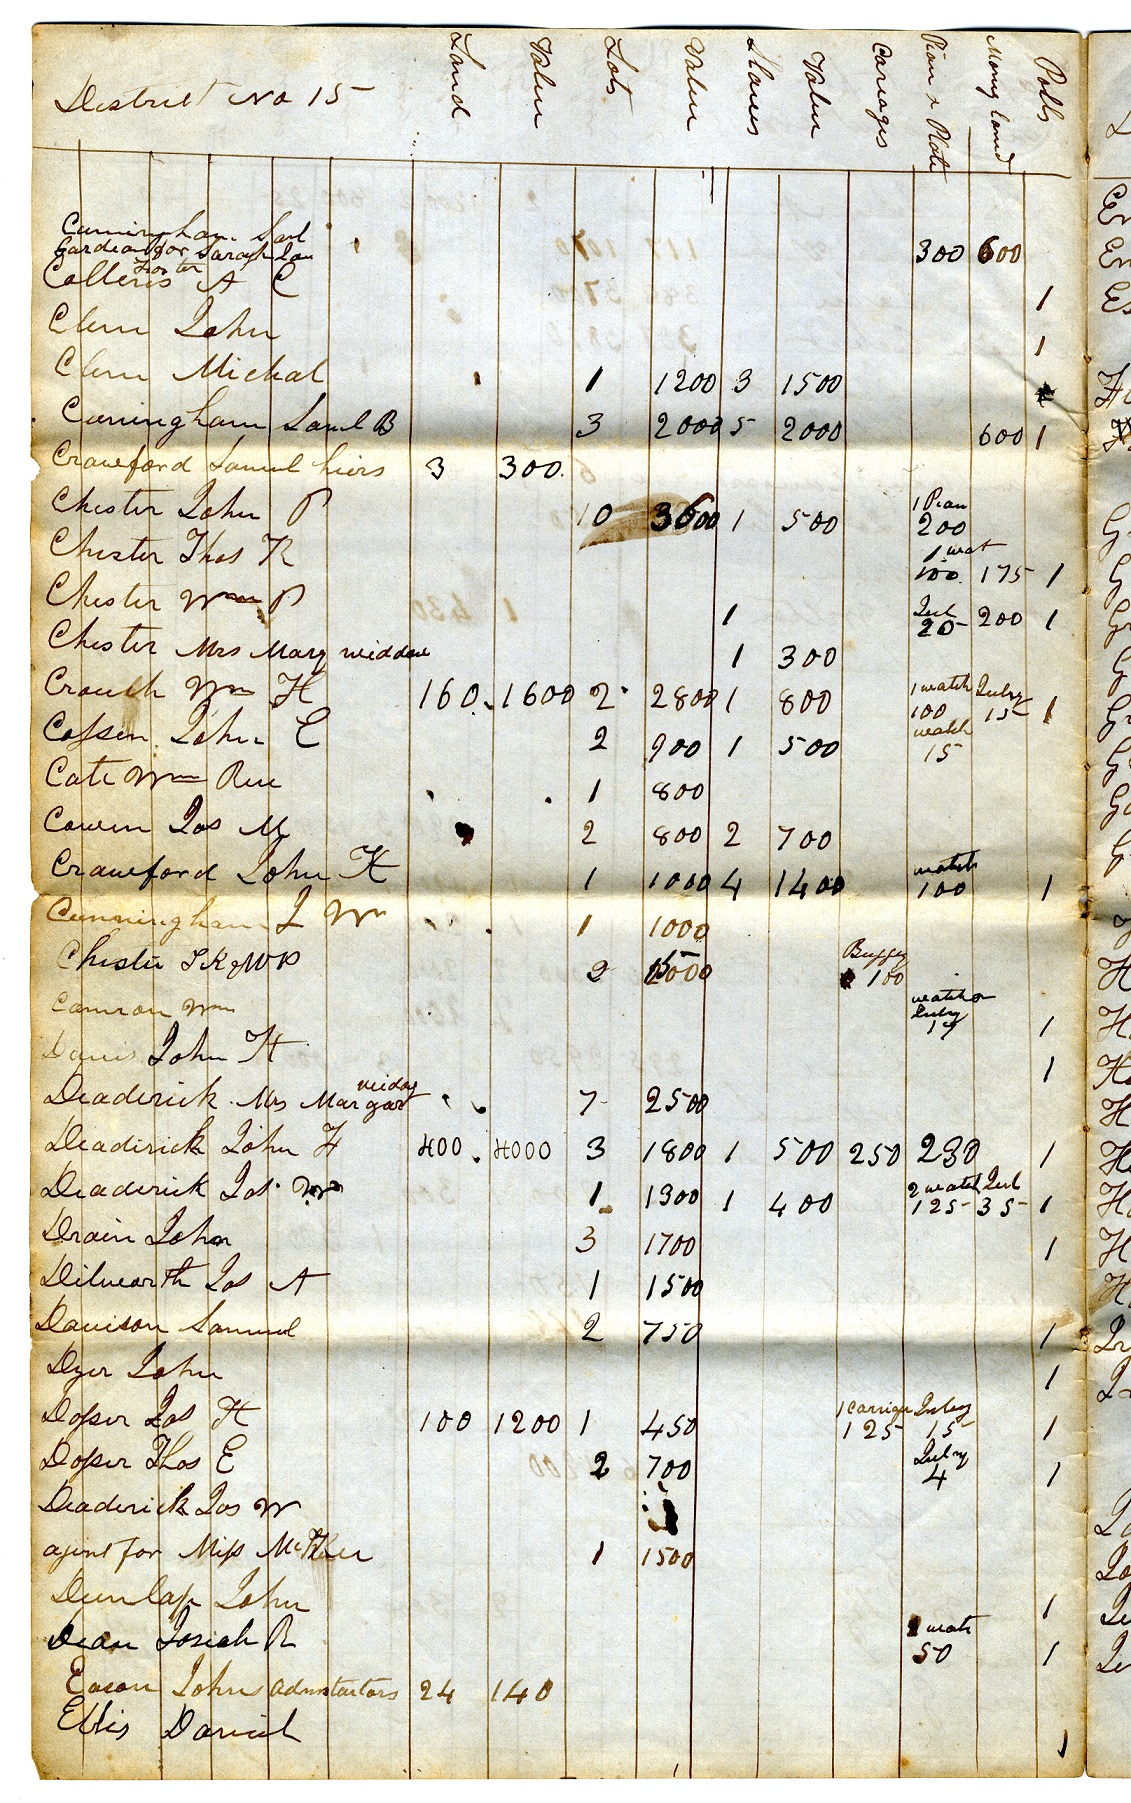 District No 15 Land Value Lots Value Slaves Value Carriages Pian & Plate Mony loand Polls
Cunningham Saml
Gardean for Sarah Lou 300 600
Foster
Colleris A C 1
Clem John 1
Clem Micheal 1 1200 3 1500
Cuningham Saml B 3 2000 5 2000 600 1
Crawford Samul hiers 3 300
Chester John P 10 3600 1 500 1 Pian 200
Chester Thos R 1 wat 100 175 1
Chester Wm P 1 Jul 25 200 1
Chester Mrs Mary widdow 1 300
Crouch Wm H 160 1600 2 2800 1 800 1 watch 100 Julry 15 1
Cossen John E 2 900 1 500 watch 15
Cate Wm Rue 1 800
Cowen Jas M 2 800 2 700
Crawford John K 1 1000 4 1400 watch 100 1
Cunningham J Wm 1 1000
Chester T K & W P 2 Buggy 100
Camron Wm watch & Julry 17 1
Davis John H 1
Deaderick Mrs Margar widay 7 2500
Deaderick John F 400 4000 3 1800 1 500 250 230 1
Deaderick Jas Wm 1 1300 1 400 2 watch 125 Jul 35 1
Drain John 3 1700 1
Dilworth Jas A 1 1500
Davison Samuel 2 750 1
Dyer John 1
Dosser Jas H 100 1200 1 450 1 carrige 125 Julry 15 1
Dosser Thos E 2 700 Julry 4 1
Deaderick Jas W
agent for Miss 1 1500
Dunlap John 1
Dean Josiah R watc 50 1
Eason Johns admstartors 24 140
Ellis Daniel 1